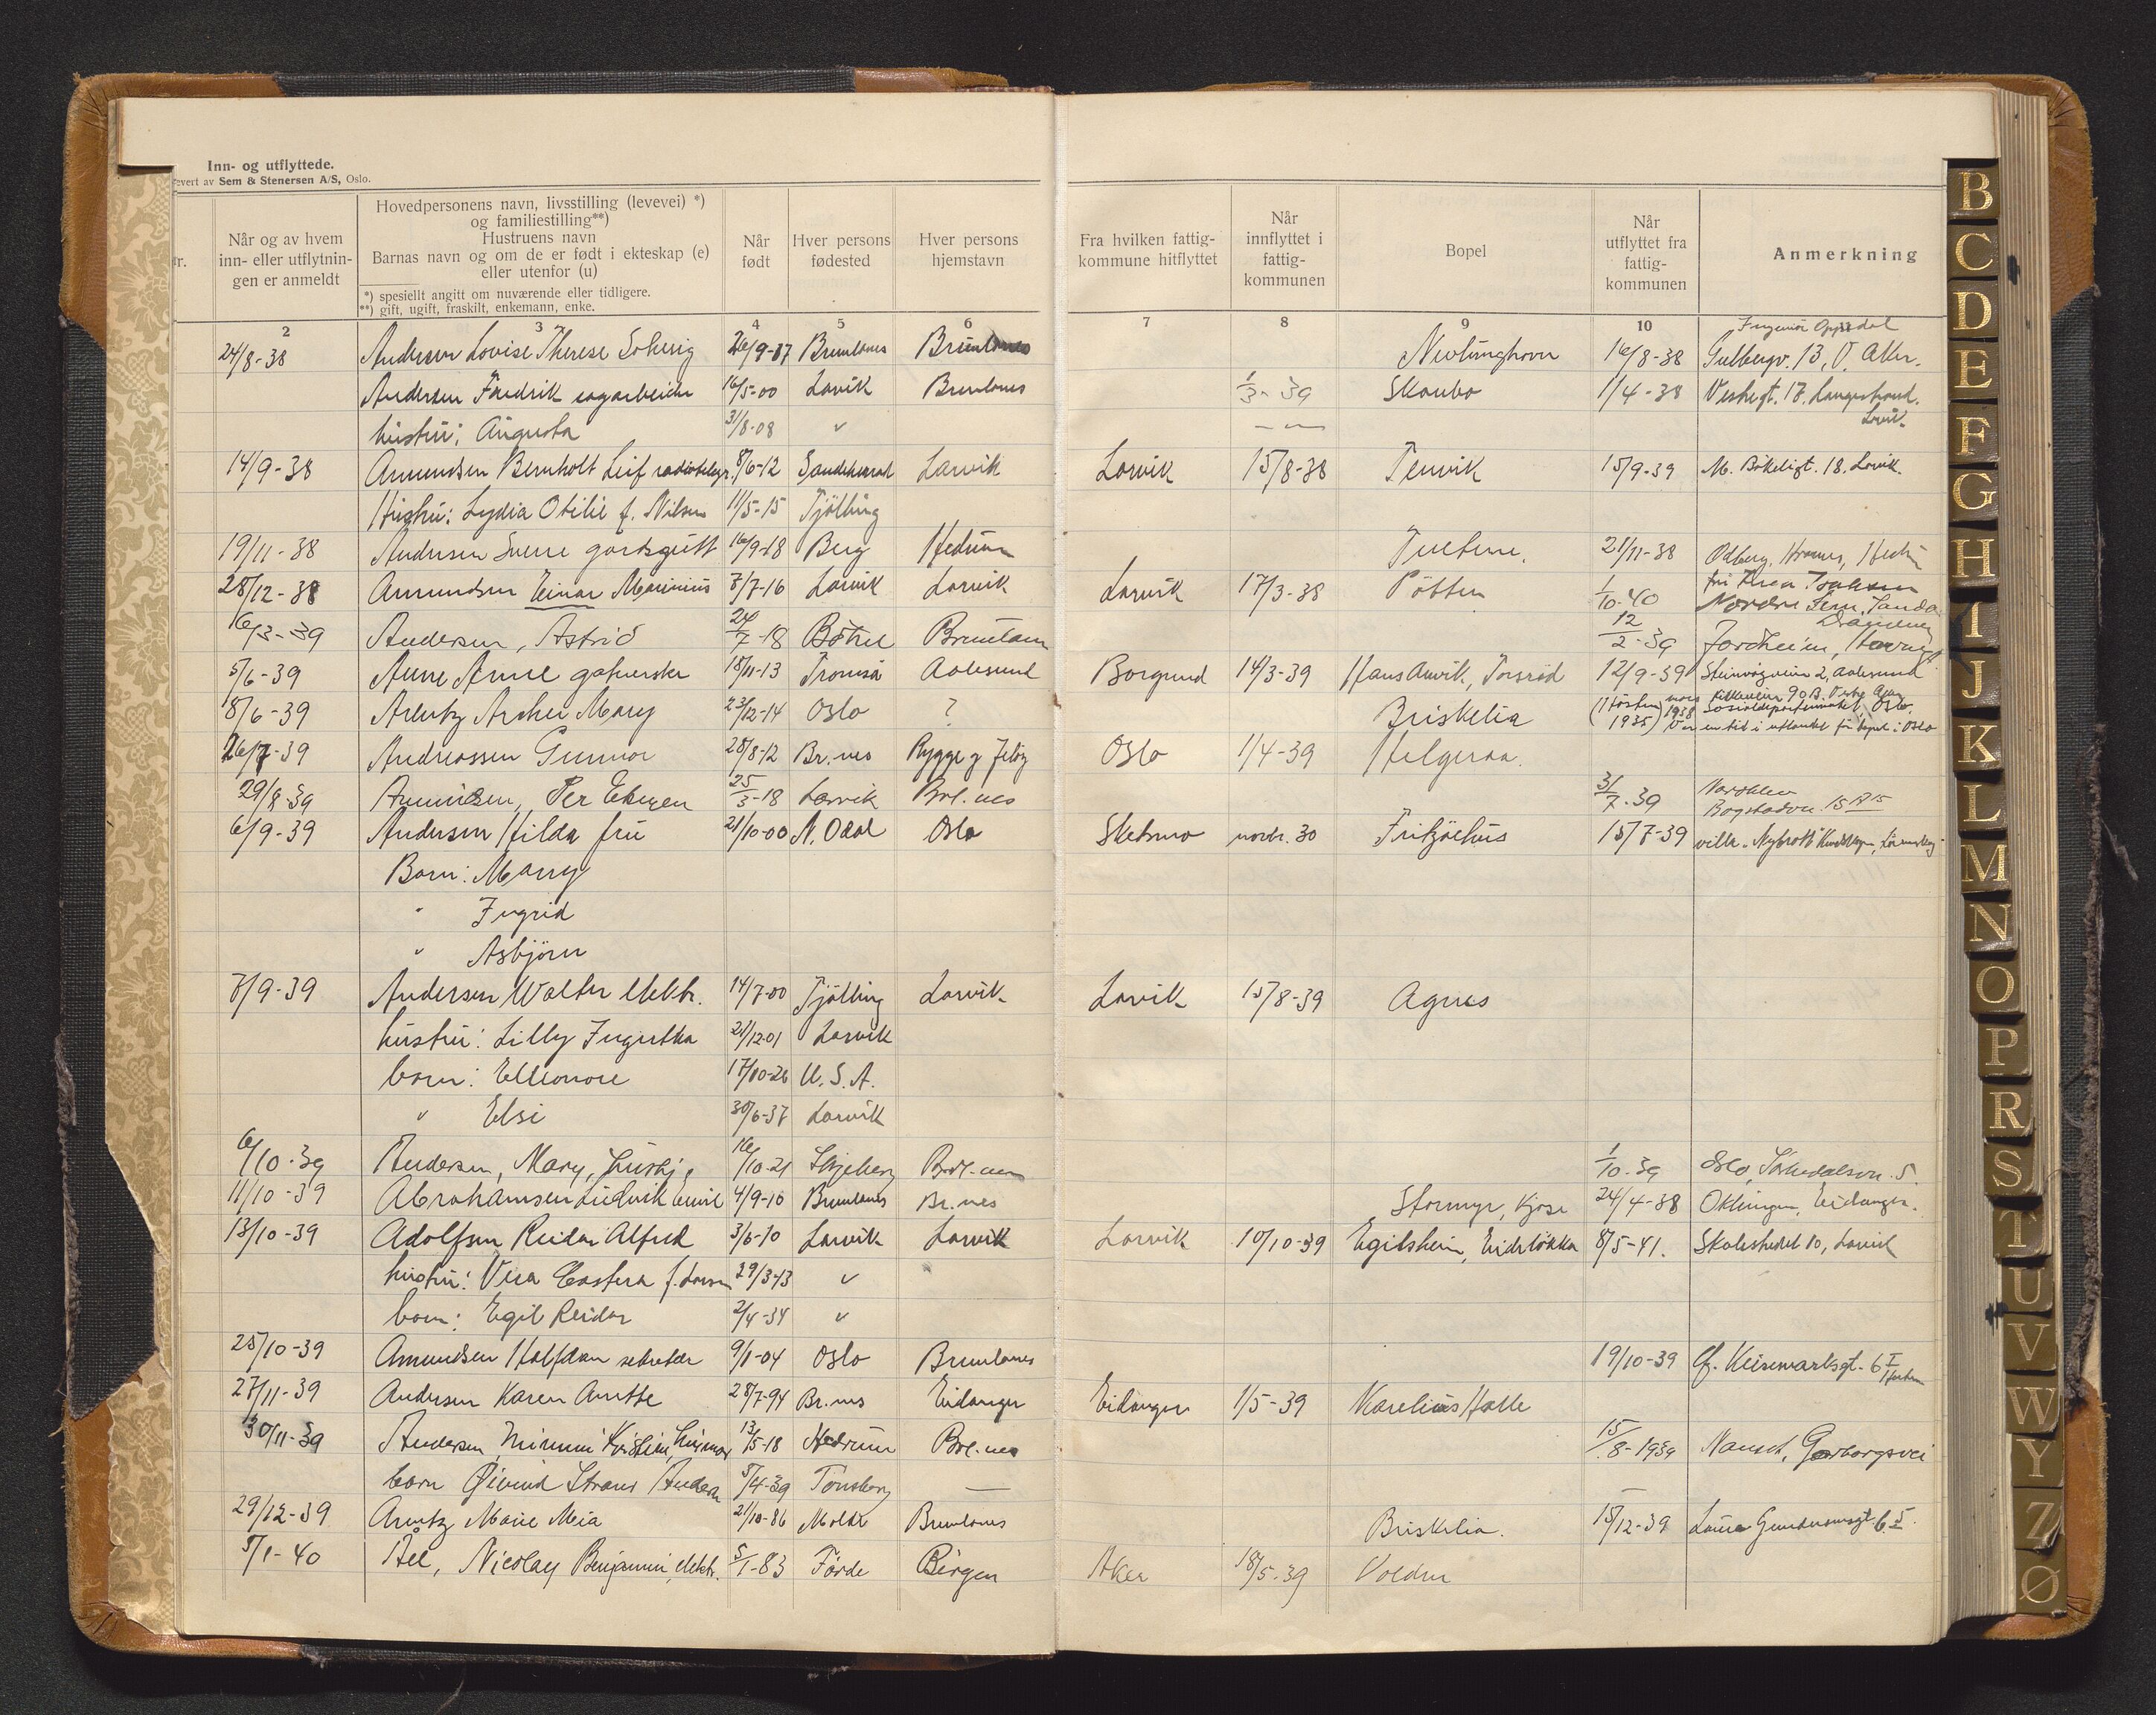 Inn- og utflyttede.
evert av Sem & Stenersen A/S, Oslo.
r.
Når og av hvem
inn- eller utflytnin-
gen er anmeldt
Hovedpersonens navn, livsstilling (levevei) *)
og familiestilling**)
Hustruens navn
Barnas navn og om de er født i ekteskap (e)
eller utenfor (u)
*) spesiellt angitt om nuværende eller tidligere.
**) gift, ugift, fraskilt, enkemann, enke.
Når
født
Hver persons
fødested
Hver persons
hjemstavn
Fra hvilken fattig-
kommune hitflyttet
Når
innflyttet i
fattig-
kommunen
Bopel
Når
utflyttet fra
fattig-
kommunen
Anmerkning
2 3 4 5 6 7 8 9 10
Ingeniør Oppsdal
24/8-38 Andersen Lovise Therese Solveig 26/9-17 Brunlanes Brunlanes 16/8-38 Gulbergv. 13, V. Aker.
Andersen Fredrik sagarbeider 16/5-00 Larvik Brunlanes 1/3-39 Skaubo 1/4-38 Langestrand.
hustru: Augusta 31/8-08 " Larvik
14/9-38 Amundsen Bernholt Leif radiotelegr. 8/6-12 Larvik Larvik 15/8-38 Tenvik 15/9-39 M. Bøkeligt. 18, Larvik
Hustru: Lydia Otilie f. Nilsen 11/5-15 Tjølling
19/11-38 Andersen Sverre gårdsgutt 16/9-18 Berg Hedrum 21/11-38 Odberg, Hedrum
28/12-38 Amundsen Einar Marinius 7/7-16 Larvik Larvik Larvik 17/3-38 Pøtten 1/10-40
Nordre
16/3-39 Andersen, Astrid 24/7-18 Brunlanes 12/2-39 Jordheim,
5/6-39 Aune Arne gartnerske 18/11-13 Tromsø Aalesund Borgund 14/3-39 Hans Anvik, 12/9-39 Steinvågveien 2, Aalesund
8/6-39 Arentz Mary 23/12-14 Oslo ? Briskelia (Høsten 1935) Sosialdepartementet, Oslo.
Var en tid i utlandet før bopel i Oslo
26/7-39 Andreassen Gunnar 28/8-12 Br.nes Rygge og Jeløy Oslo 1/4-39 Helgeraa.
29/8-39 Amundsen, Per 25/3-18 Larvik Brl.nes 31/7-39
Bogstadvn. 15 B
6/9-39 Andersen Hilda fru 21/10-00 N. Odal Oslo Skedsmo novbr. 30 Fritzøehus 15/7-39
Barn: Marry
" Ingrid
" Asbjørn
7/9-39 Andersen Walter elektr. 14/7-00 Tjølling Larvik Larvik 15/8-39 Agnes
hustru: Lilly Ingertha 21/12-01 Larvik
barn: Elleonore 17/10-26 U.S.A.
" Elsi 30/6-37 Larvik
6/10-39 Andersen, Mary, hushj. 16/10-21 Skjeberg Brl.nes 1/10-39 Oslo, Sørkedalsvn. 5.
11/10-39 Abrahamsen Ludvik Emil 4/9-10 Brunlanes Br.nes Stormyr, Kjose 24/4-38 Eidanger.
13/10-39 Adolfsen Reidar Alfred 3/6-10 Larvik Larvik Larvik 10/10-39 Egilsheim, Eidsløkka 8/5-41. Skolestredet 10, Larvik
hustru: Vera f. Larsen 29/3-13 "
barn: Egil Reidar 2/4-34 "
25/10-39 Amundsen Halfdan sekretær 9/1-04 Oslo Brunlanes 19/10-39
27/11-39 Andersen Karen Anette 28/7-94 Br.nes Eidanger Eidanger 1/5-39 Karelius Halle
30/11-39 Andersen, Mimmi Kristine, husmor 13/5-18 Hedrum Brl.nes 15/8-1939 Nanset, Garborgsvei
barn Øivind Andersen 5/4-39 Tønsberg —
29/12-39 Arentz Marie Mia 21/10-86 Molde Brunlanes Briskelia. 15/12-39 Laura Gundersensgt. 6
5/1-40 Ael, Nicolay Benjamin, elektr. 5/1-83 Førde Bergen Aker 18/5-39 Volden
B
C
D
E
F
G
H
I
J
K
L
M
N
O
P
R
S
T
U
V
W
Y
Z
Ø